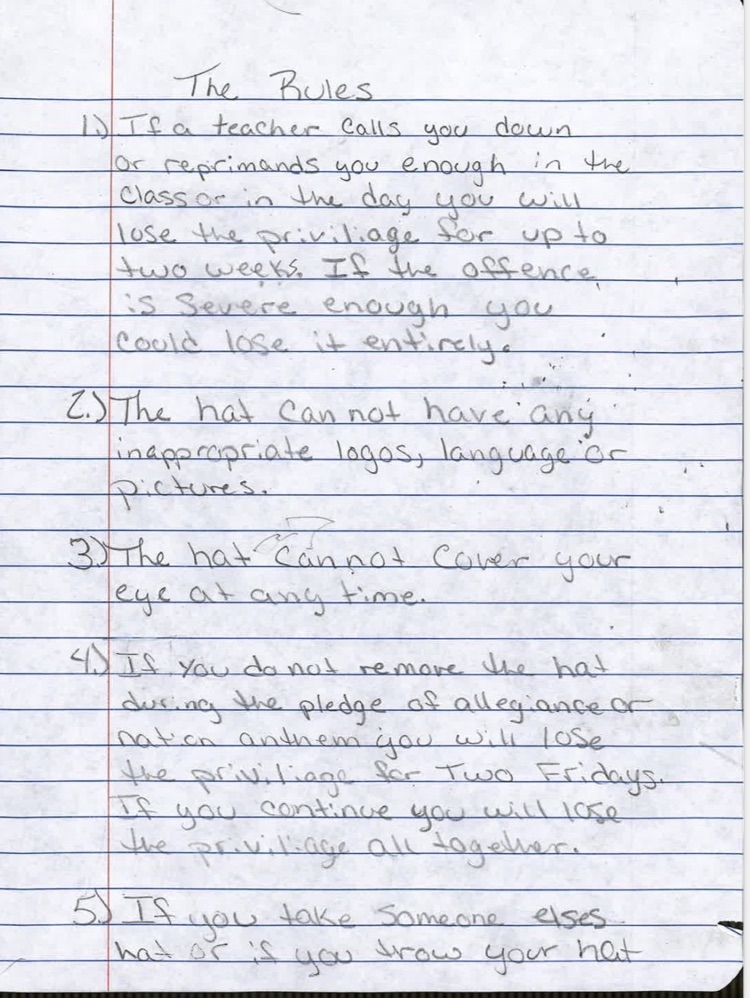 The Rules
1.) If a teacher calls you down
or reprimands you enough in the
class or in the day you will
lose the priviliage for up to
two weeks. If the offence
is severe enough you
could lose it entirely.
2.) The hat can not have any
inappropriate logos, language or
pictures.
3.) The hat cannot cover your
eye at any time.
4.) If you do not remove the hat
during the pledge of allegiance or
nation anthem you will lose
the priviliage for Two Fridays.
If you continue you will lose
the priviliage all together.
5.) If you take someone elses
hat or if you trow your hat